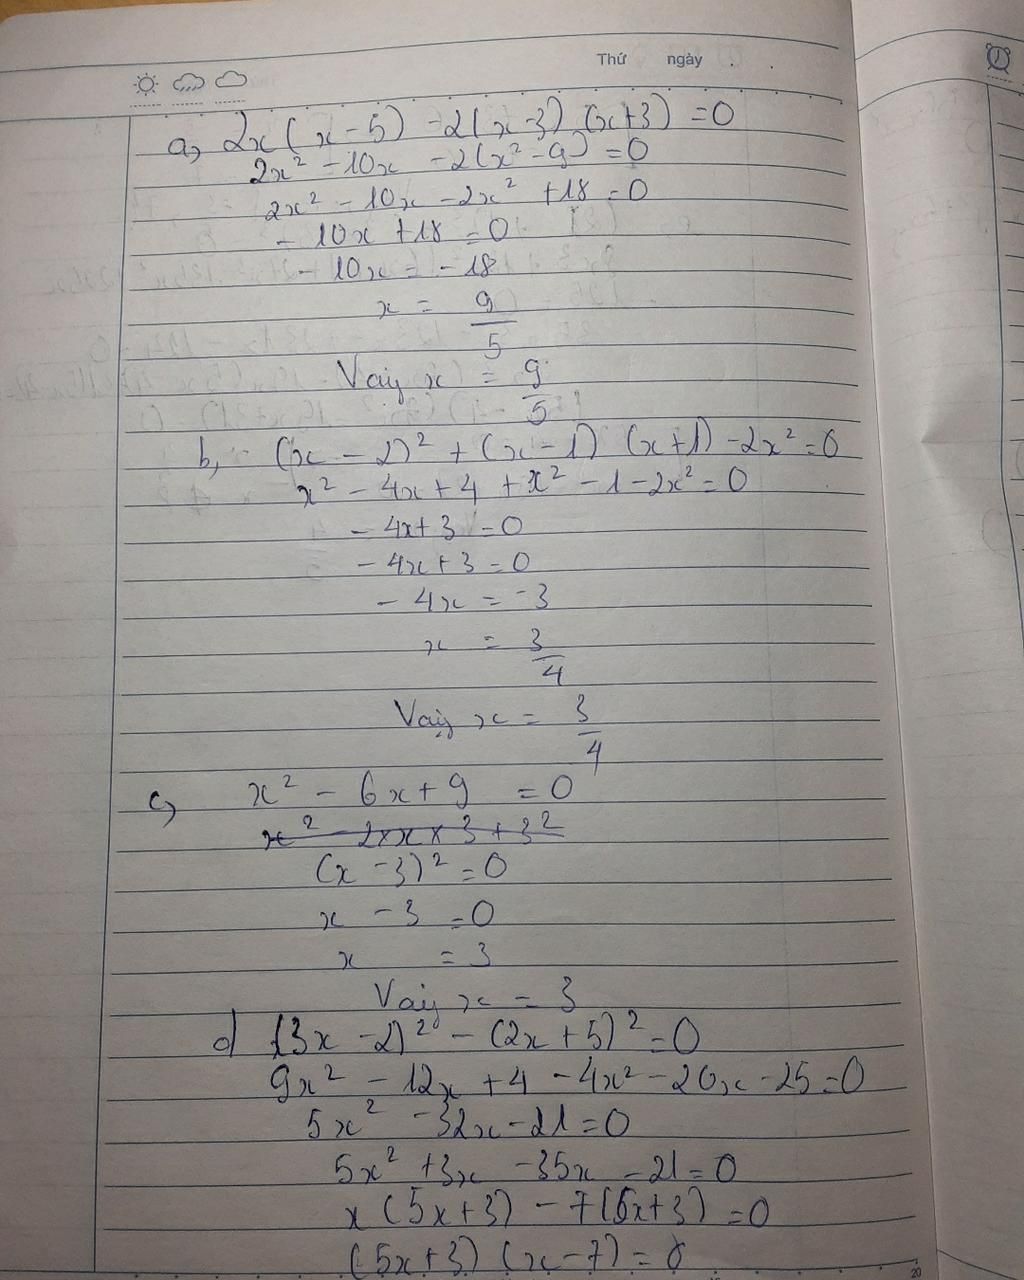 Thứ ngày . .
a, 2x(x-5) -2(x-3)(x+3) =0
2x² -10x -2(x²-9) =0
2x² - 10x -2x² +18 =0
- 10x +18 =0
- 10x = -18
x = 9/5
Vậy x = 9/5
b, (x-2)² + (x-1)(x+1) -2x² =0
x² - 4x+4 +x² -1 -2x² =0
- 4x+3 =0
- 4x+3 =0
- 4x = -3
x = 3/4
Vậy x = 3/4
c, x² - 6x+9 =0
x² - 2×x×3 + 3²
(x-3)² =0
x -3 =0
x = 3
Vậy x = 3
d (3x -2)² - (2x+5)² =0
9x² - 12x +4 -4x² -20x -25 =0
5x² -32x -21 =0
5x² +3x -35x -21 =0
x(5x+3) - 7(5x+3) =0
(5x+3)(x-7) =0
20